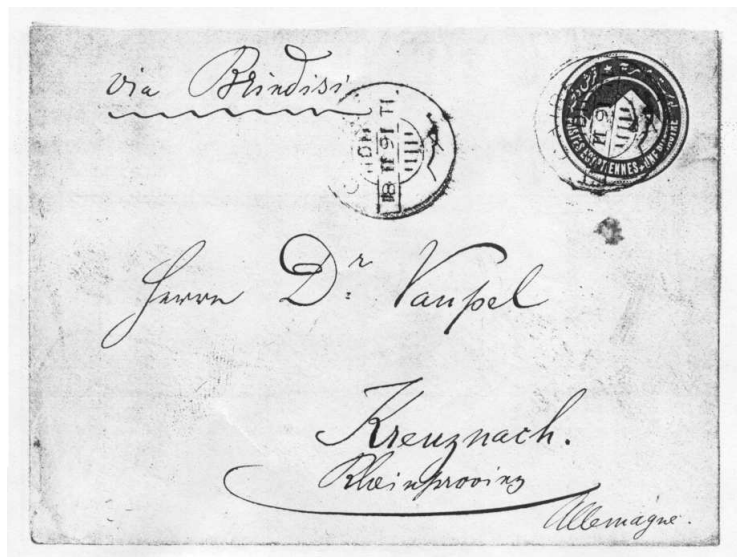 via Brindisi
18 II 91 TI
POSTES EGYPTIENNES UNE PIASTRE
Herrn Dr. Vaupel
Kreuznach.
Rheinprovinz
Allemagne.